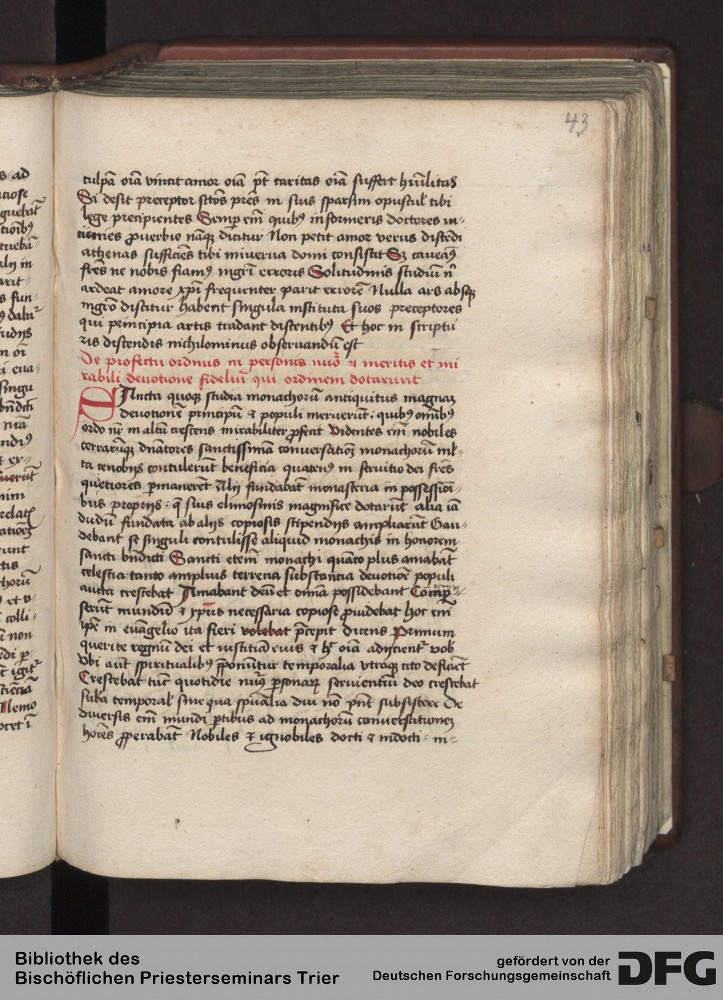 43
culpā oīa vincit amor oīa pt̄ caritas oīa suffert hūilitas
Si desit preceptor sctōs prēs in suis sparsim opuscul' tibi
lege precipientes Semp em̄ quibꝯ in formeris doctores in-
uenies ꝓuerbio nāqꝫ dicitur Non petit amor verus discedi
athenas sufficiēs tibi minerua domi consistit Sꝫ caueāꝯ
frēs ne nobis fiamꝯ mgr̄i erroris Solitudinis studiū n̄
ardeat amore xp̄i frequenter parit errorē Nulla ars absqꝫ
mgrō discitur habent singula instituta suos preceptores
qui principia artis tradant discentibꝯ Et hoc in scriptu
ris discendis nichilominus obseruandū est
De profectu ordinis in personis et meritis et mi
rabili deuotione fideliū qui ordinem dotarunt
Sancta quoqꝫ studia monachorū antiquitus magnaꝫ
deuotionē principū et populi meruerūt: quibꝯ om̄ibꝯ
ordo nr̄ in altū crescens mirabiliter ꝓfecit Videntes em̄ nobiles
terrarūqꝫ dn̄atores sanctissimā conuersationē monachorū ml'-
ta cenobijs contulerūt beneficia quatenꝯ in seruitio dei frēs
quetiores ꝑmanerēt Alij fundabāt monasteria in possessioī-
bus proprijs: q̄ suis elimosinis magnifice dotarūt alia iā
dudū fundata ab alijs copiosis stipendijs ampliarūt Gau-
debant se singuli contulisse aliquid monachis in honorem
sancti bn̄dicti Sancti etem̄ monachi quāto plus amabāt
celestia: tanto amplius terrena substantia deuotiōe populi
aucta crescebat Amabant deū et omnia possidebant
serūt mundū et xp̄us necessaria copiose ꝓuidebat hoc em̄
ip̄e in euāgelio ita fieri volebat p̄cepit dicens Primum
querite regnū dei et iusticiā eius et h' oīa adijcient' vob'
Vbi aut̄ spiritualibꝯ p̄ponūtur temporalia vtraqꝫ cito deficiūt
Crescebat tūc quotidie ꝑsonaꝝ seruientiū deo crescebat
suba temporal' sine qua spūalia diu nō pn̄t subsistere De
diuersis em̄ mundi ꝑtibus ad monachorū conuersationeꝫ
hoīes ꝓperabāt Nobiles et ignobiles docti et indocti: in-
Bibliothek des
Bischöflichen Priesterseminars Trier
gefördert von der
Deutschen Forschungsgemeinschaft
DFG